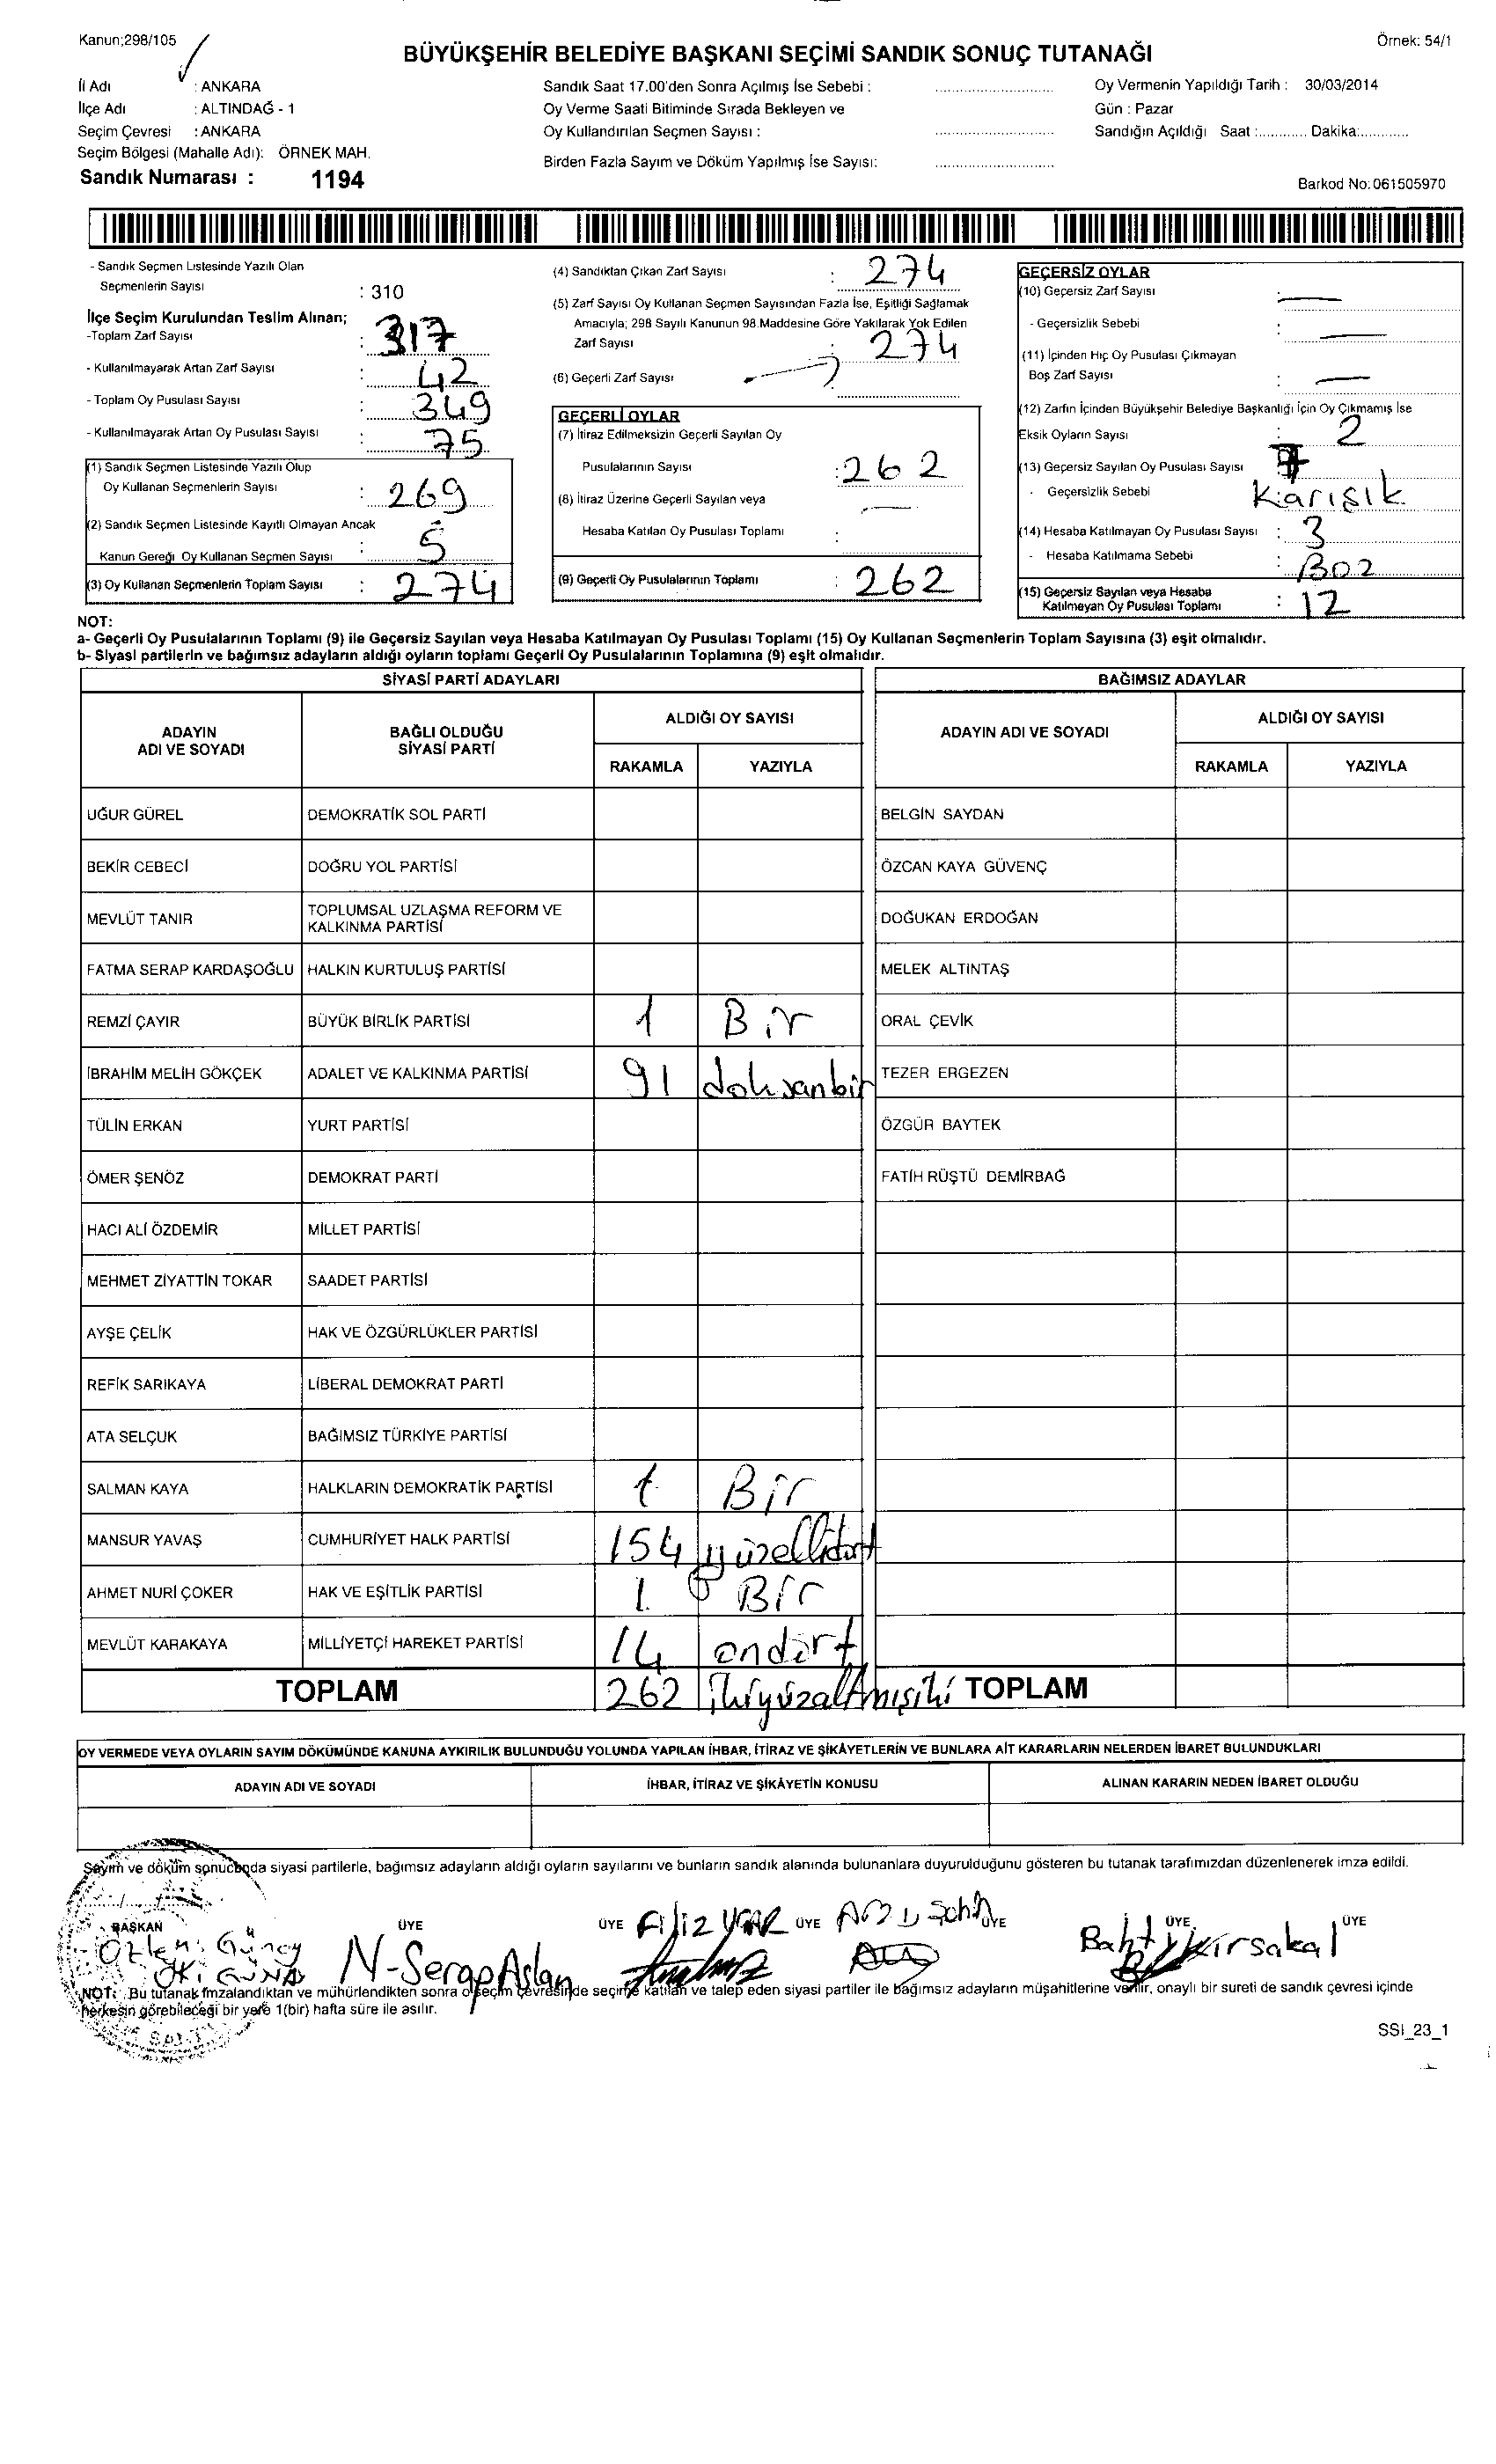 Kanun;298/105
Örnek: 54/1
BÜYÜKŞEHİR BELEDİYE BAŞKANI SEÇİMİ SANDIK SONUÇ TUTANAĞI
İl Adı : ANKARA
İlçe Adı : ALTINDAĞ - 1
Seçim Çevresi : ANKARA
Seçim Bölgesi (Mahalle Adı): ÖRNEK MAH.
Sandık Numarası : 1194
Sandık Saat 17.00'den Sonra Açılmış İse Sebebi : ..............................
Oy Verme Saati Bitiminde Sırada Bekleyen ve
Oy Kullandırılan Seçmen Sayısı : ..............................
Birden Fazla Sayım ve Döküm Yapılmış İse Sayısı: ..............................
Oy Vermenin Yapıldığı Tarih : 30/03/2014
Gün : Pazar
Sandığın Açıldığı Saat :............ Dakika:............
Barkod No:061505970
- Sandık Seçmen Listesinde Yazılı Olan
Seçmenlerin Sayısı : 310
İlçe Seçim Kurulundan Teslim Alınan;
-Toplam Zarf Sayısı : 317
- Kullanılmayarak Artan Zarf Sayısı : 42
- Toplam Oy Pusulası Sayısı : 349
- Kullanılmayarak Artan Oy Pusulası Sayısı : 75
(1) Sandık Seçmen Listesinde Yazılı Olup
Oy Kullanan Seçmenlerin Sayısı : 269
(2) Sandık Seçmen Listesinde Kayıtlı Olmayan Ancak
Kanun Gereği Oy Kullanan Seçmen Sayısı : 5
(3) Oy Kullanan Seçmenlerin Toplam Sayısı : 274
(4) Sandıktan Çıkan Zarf Sayısı : 274
(5) Zarf Sayısı Oy Kullanan Seçmen Sayısından Fazla İse, Eşitliği Sağlamak
Amacıyla; 298 Sayılı Kanunun 98.Maddesine Göre Yakılarak Yok Edilen
Zarf Sayısı : 274
(6) Geçerli Zarf Sayısı
GEÇERLİ OYLAR
(7) İtiraz Edilmeksizin Geçerli Sayılan Oy
Pusulalarının Sayısı : 262
(8) İtiraz Üzerine Geçerli Sayılan veya
Hesaba Katılan Oy Pusulası Toplamı : —
(9) Geçerli Oy Pusulalarının Toplamı : 262
GEÇERSİZ OYLAR
(10) Geçersiz Zarf Sayısı : —
- Geçersizlik Sebebi : —
(11) İçinden Hiç Oy Pusulası Çıkmayan
Boş Zarf Sayısı : —
(12) Zarfın İçinden Büyükşehir Belediye Başkanlığı İçin Oy Çıkmamış İse
Eksik Oyların Sayısı : 2
(13) Geçersiz Sayılan Oy Pusulası Sayısı : 7
- Geçersizlik Sebebi Karışık
(14) Hesaba Katılmayan Oy Pusulası Sayısı : 3
- Hesaba Katılmama Sebebi :
(15) Geçersiz Sayılan veya Hesaba
Katılmayan Oy Pusulası Toplamı : 12
NOT:
a- Geçerli Oy Pusulalarının Toplamı (9) ile Geçersiz Sayılan veya Hesaba Katılmayan Oy Pusulası Toplamı (15) Oy Kullanan Seçmenlerin Toplam Sayısına (3) eşit olmalıdır.
b- Siyasi partilerin ve bağımsız adayların aldığı oyların toplamı Geçerli Oy Pusulalarının Toplamına (9) eşit olmalıdır.
SİYASİ PARTİ ADAYLARI
ADAYIN ADI VE SOYADI BAĞLI OLDUĞU SİYASİ PARTİ ALDIĞI OY SAYISI
RAKAMLA YAZIYLA
UĞUR GÜREL DEMOKRATİK SOL PARTİ
BEKİR CEBECİ DOĞRU YOL PARTİSİ
MEVLÜT TANIR TOPLUMSAL UZLAŞMA REFORM VE KALKINMA PARTİSİ
FATMA SERAP KARDAŞOĞLU HALKIN KURTULUŞ PARTİSİ
REMZİ ÇAYIR BÜYÜK BİRLİK PARTİSİ 1 Bir
İBRAHİM MELİH GÖKÇEK ADALET VE KALKINMA PARTİSİ 91 doksanbir
TÜLİN ERKAN YURT PARTİSİ
ÖMER ŞENÖZ DEMOKRAT PARTİ
HACI ALİ ÖZDEMİR MİLLET PARTİSİ
MEHMET ZİYATTİN TOKAR SAADET PARTİSİ
AYŞE ÇELİK HAK VE ÖZGÜRLÜKLER PARTİSİ
REFİK SARIKAYA LİBERAL DEMOKRAT PARTİ
ATA SELÇUK BAĞIMSIZ TÜRKİYE PARTİSİ
SALMAN KAYA HALKLARIN DEMOKRATİK PARTİSİ 1 Bir
MANSUR YAVAŞ CUMHURİYET HALK PARTİSİ 154 yüzellidört
AHMET NURİ ÇOKER HAK VE EŞİTLİK PARTİSİ 1 Bir
MEVLÜT KARAKAYA MİLLİYETÇİ HAREKET PARTİSİ 14 ondört
TOPLAM 262 ikiyüzaltmışiki
BAĞIMSIZ ADAYLAR
ADAYIN ADI VE SOYADI ALDIĞI OY SAYISI
RAKAMLA YAZIYLA
BELGİN SAYDAN
ÖZCAN KAYA GÜVENÇ
DOĞUKAN ERDOĞAN
MELEK ALTINTAŞ
ORAL ÇEVİK
TEZER ERGEZEN
ÖZGÜR BAYTEK
FATİH RÜŞTÜ DEMİRBAĞ
TOPLAM
OY VERMEDE VEYA OYLARIN SAYIM DÖKÜMÜNDE KANUNA AYKIRILIK BULUNDUĞU YOLUNDA YAPILAN İHBAR, İTİRAZ VE ŞİKÂYETLERİN VE BUNLARA AİT KARARLARIN NELERDEN İBARET BULUNDUKLARI
ADAYIN ADI VE SOYADI İHBAR, İTİRAZ VE ŞİKÂYETİN KONUSU ALINAN KARARIN NEDEN İBARET OLDUĞU
Sayım ve döküm sonucunda siyasi partilerle, bağımsız adayların aldığı oyların sayılarını ve bunların sandık alanında bulunanlara duyurulduğunu gösteren bu tutanak tarafımızdan düzenlenerek imza edildi.
BAŞKAN ÜYE ÜYE ÜYE ÜYE ÜYE ÜYE
N-Serap Aslan Filiz Bahti Kirsakal
NOT: Bu tutanak imzalandıktan ve mühürlendikten sonra o seçim çevresinde seçime katılan ve talep eden siyasi partiler ile bağımsız adayların müşahitlerine verilir, onaylı bir sureti de sandık çevresi içinde
herkesin görebileceği bir yere 1(bir) hafta süre ile asılır.
SSI_23_1